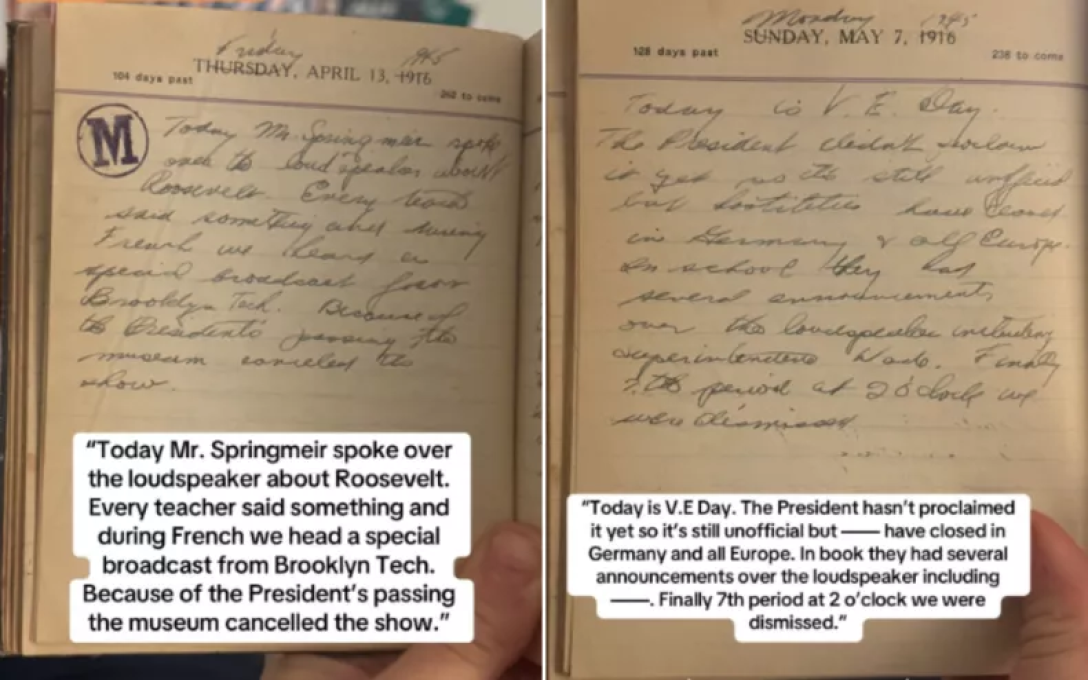 Friday 1945
THURSDAY, APRIL 13, 1916
104 days past
262 to come
M
Today Mr. Springmeir spoke
over the loudspeaker about
Roosevelt. Every teacher
said something and during
French we heard a
special broadcast from
Brooklyn Tech. Because of
the Presidents passing the
museum canceled the
show.
"Today Mr. Springmeir spoke over
the loudspeaker about Roosevelt.
Every teacher said something and
during French we head a special
broadcast from Brooklyn Tech.
Because of the President's passing
the museum cancelled the show."
Monday 1945
SUNDAY, MAY 7, 1916
128 days past
238 to come
Today is V.E. Day.
The President didn't proclaim
it yet so its still unofficial
but hostilities have ceased
in Germany & all Europe.
In school they had
several announcements
over the loudspeaker including
superintendent Wade. Finally
7th period at 2 o'clock we
were dismissed
"Today is V.E Day. The President hasn't proclaimed
it yet so it's still unofficial but —— have closed in
Germany and all Europe. In book they had several
announcements over the loudspeaker including
——. Finally 7th period at 2 o'clock we were
dismissed."